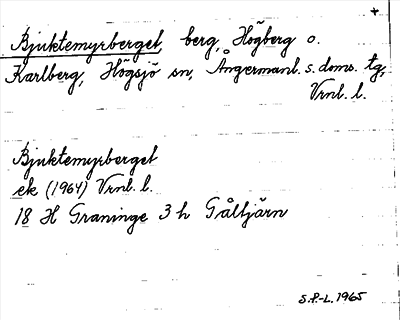 +
Bjuktemyrberget, berg, Högberg o.
Karlberg, Högsjö sn, Ångermanl. s. doms. tg,
Vrnl. l.
Bjuktemyrberget
ek (1964) Vrnl. l.
18 H Graninge 3 h Gåltjärn
S.P.-L. 1965